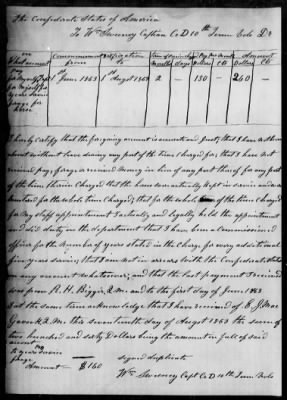 The Confedrate States of America
To Wm Sweeney Captian Co D 10th Tenn Vols Dr
On What account
Commencement from
Expiration to
Term of service charged months days
Pay Per Month Dollars Cts
Amount Dollars Cts
For myself
1st June 1863
1st August 1863
2
"
130
"
260
"
forage for horse
I hereby certify that the forgoing account is accurate and just; that I have not been
absent without leave during any part of the time Charged for; that I have not
received pay, forage, or received money in lieu of any part thereof for any part of
the time therein Charged that the horse was actually Kept in service and was
mustard for the whole time Charged; that for the whole of the time Charged
for My staff appointment I actually and legally held the appointment
and did duty in the department that I have been a Commissioned
officer for the Number of years stated in the Charge for every additional
five years service; that I am not in arrears with the Confederate states
on any account whatsoever; and that the last payment I received
was from R. H. Biggin, Q.M. and to the first day of June 1863
I at the same time acknowledge that I have received of E. J. Mac
Gavock Q.M. this seventeenth day of August 1863 the sum of
two hundred and sixty Dollars being the amount in full of said
account
Pay
years service
forage
Amount $ 260
signed duplicate
Wm Sweeney Capt Co D 10th Tenn Vols